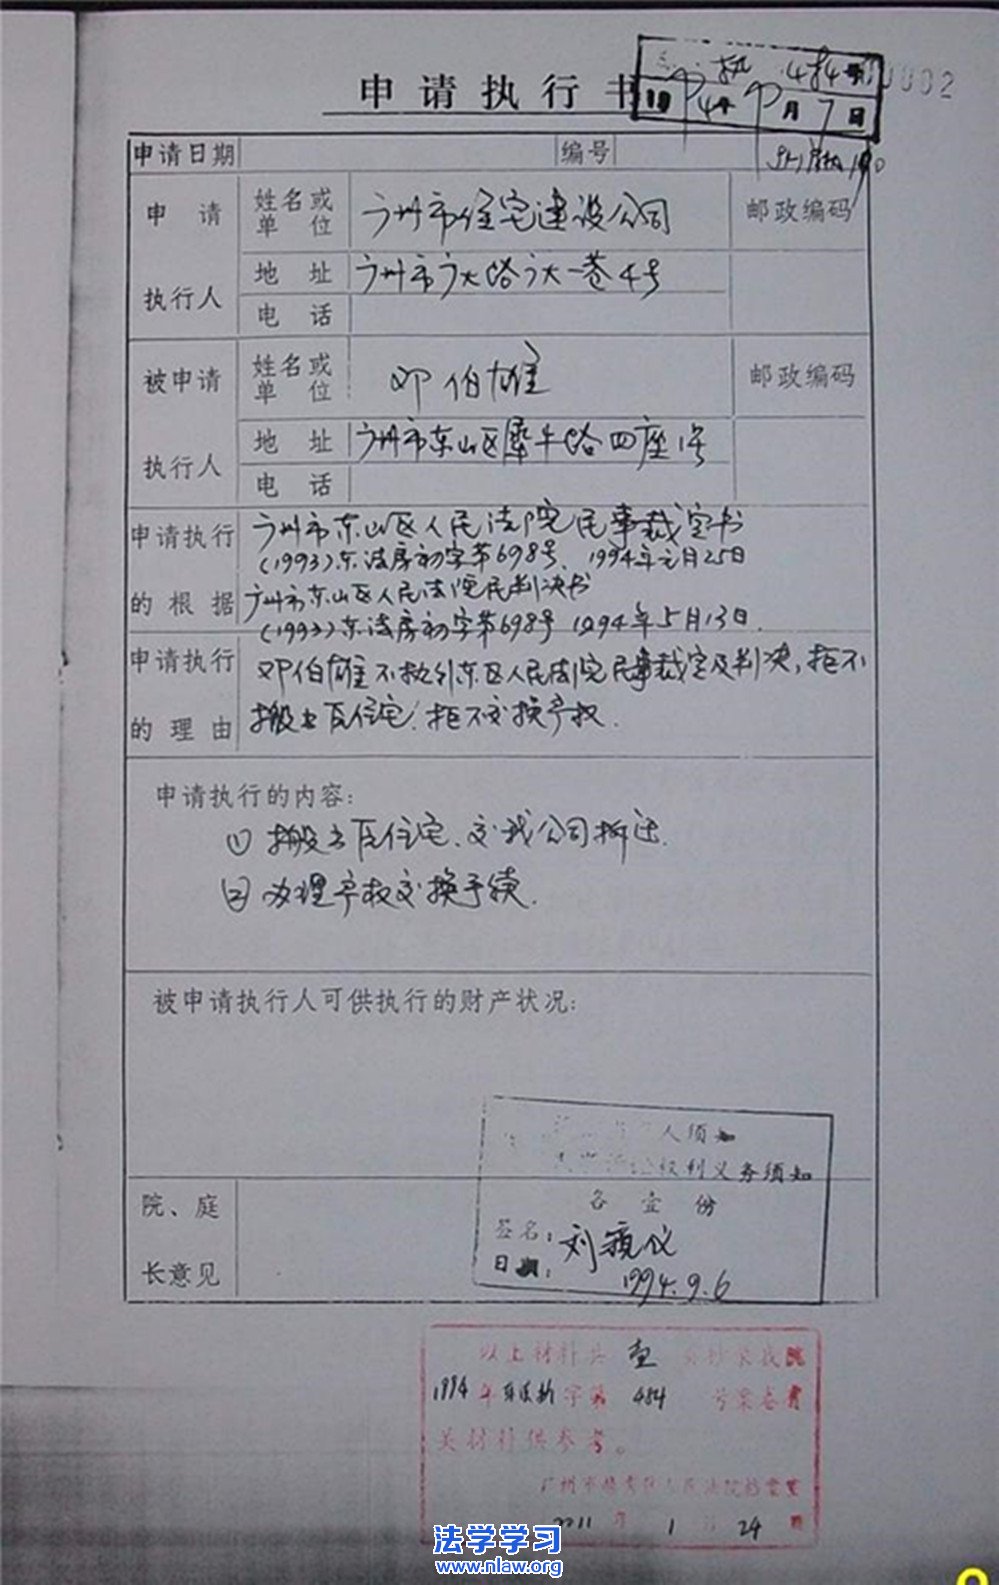 申请执行书
执 484号
1994年9月7日
0002
申请日期 编号
申请 姓名或单位 广州市住宅建设公司 邮政编码
执行人 地址 广州市广大路广大一巷4号
电话
被申请 姓名或单位 邓伯雄 邮政编码
执行人 地址 广州市东山区犀牛路四座1号
电话
申请执行 广州市东山区人民法院民事裁定书
(1993)东法房初字第698号、1994年元月25日
的根据 广州市东山区人民法院民判决书
(1993)东法房初字第698号 1994年5月13日.
申请执行 邓伯雄不执行东区人民法院民事裁定及判决,拒不
的理由 搬出瓦住宅,拒不交换产权.
申请执行的内容:
① 搬出瓦住宅、交我公司拆迁.
② 办理产权交换手续.
被申请执行人可供执行的财产状况:
人须知
权利义务须知
各壹份
签名:
日期:1994.9.6
院、庭
长意见
以上材料共 壹
1994年东法执字第484号案卷有
关材料供参考。
2011年1月24
法学学习
www.nlaw.org